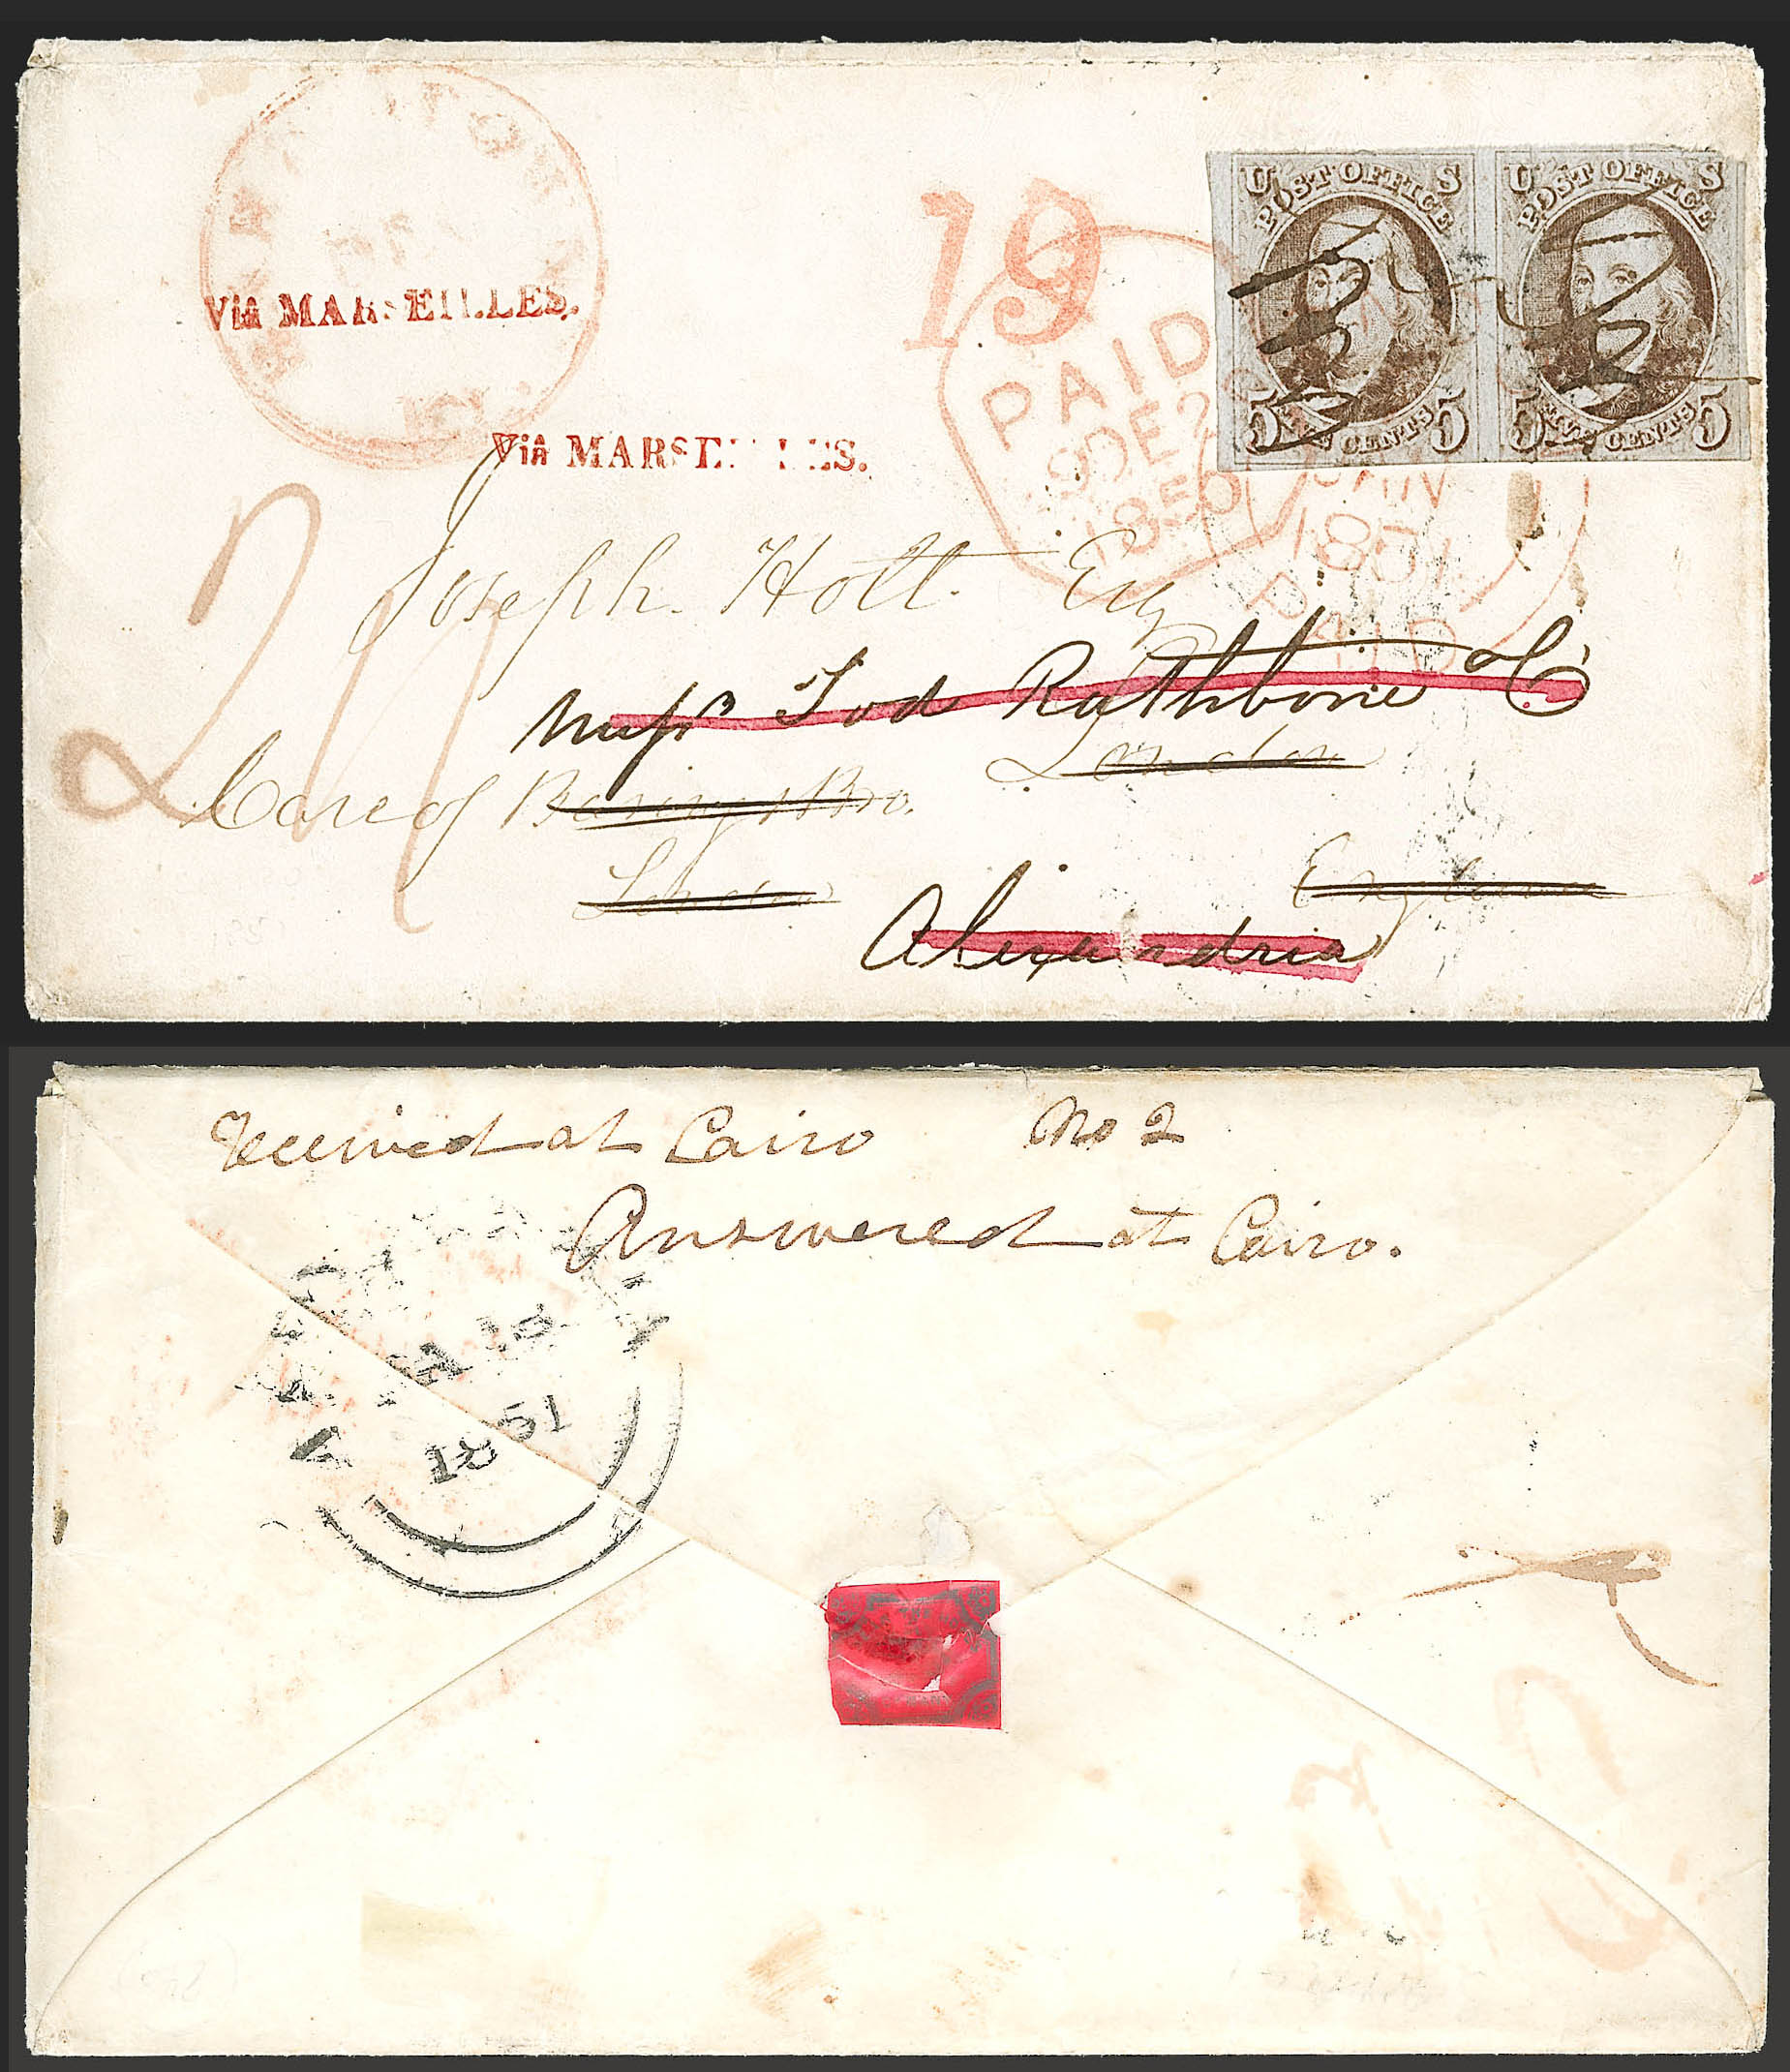 19
Via MARSEILLES.
U S
POST OFFICE
5 FIVE CENTS 5
U S
POST OFFICE
5 FIVE CENTS 5
PAID
DE 2
1850
Via MARSEILLES.
JAN
1851
PAID
Joseph Holt. Esq
Messrs Tod Rathbone & Co
London
Care of Barings Bro.
London
England
Alexandria
received at Cairo No 2
Answered at Cairo.
1851